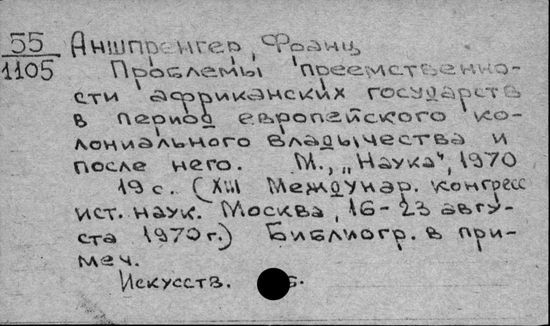 55 Аншпренгер, Франц
1105 Проблемы преемственно-
сти африканских государств
в период европейского ко-
лониального владычества и
после него. М., „Наука“, 1970
19 с. (XIII Междунар. конгресс
ист. наук. Москва, 16-23 авгу-
ста 1970 г.) Библиогр. в при-
меч.
Искусств.